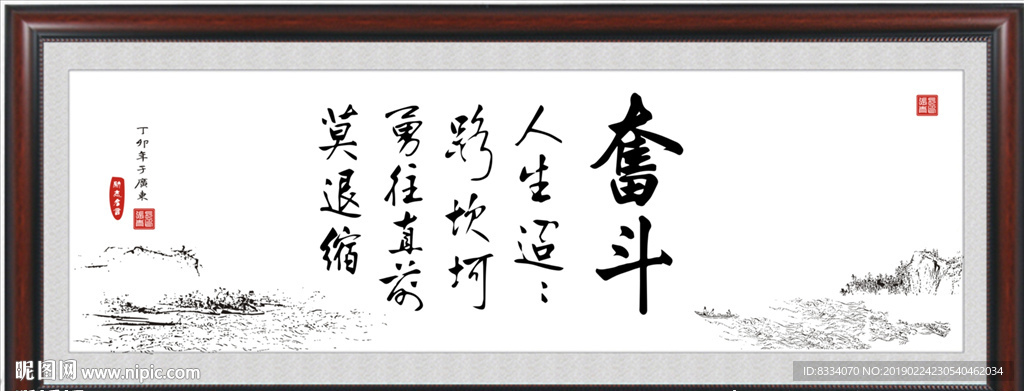 奮斗
人生迢〻
路坎坷
勇往直前
莫退缩
丁卯年于廣東
昵图网 www.nipic.com
ID:8334070 NO:20190224230540462034